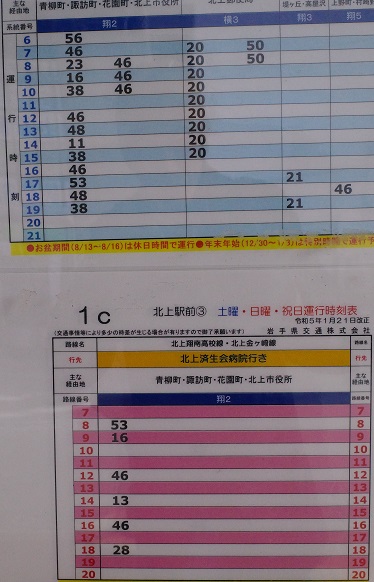 主な経由地 青柳町・諏訪町・花園町・北上市役所
系統番号 翔2 横3 翔3 翔5
運行時刻
6 56
7 46 20 50
8 23 46 20 50
9 16 46 20
10 38 46 20
11 20
12 46 20
13 48 20
14 11 20
15 38 20
16 46
17 53 21
18 48 46
19 38 21
20
21
●お盆期間(8/13~8/16)は休日時間で運行●年末年始(12/30~1/3)は特別時間で
1c 北上駅前③ 土曜・日曜・祝日運行時刻表
令和5年1月21日改正
(交通事情等により多少の時差が生じる場合が有りますので御了承願います) 岩手県交通株式会社
路線名 北上翔南高校線・北上金ヶ崎線 路線名
行先 北上済生会病院行き 行先
主な経由地 青柳町・諏訪町・花園町・北上市役所 主な経由地
路線番号 翔2 路線番号
7 7
8 53 8
9 16 9
10 10
11 11
12 46 12
13 13
14 13 14
15 15
16 46 16
17 17
18 28 18
19 19
20 20